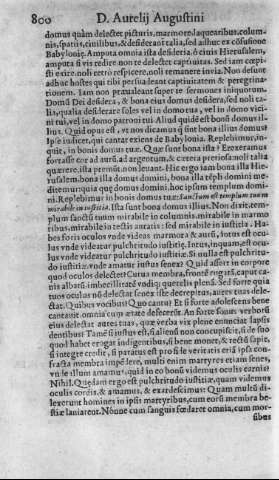 800 D. Aurelij Augustini
domus quàm delectet picturis, marmore, laquearibus, colum-
nis, spatiis, cubilibus, & desiderant talia, sed adhuc ex cōfusione
Babylonię. Amputa omnia ista desideria, ô civis Hierusalem,
amputa si vis redire non te delectet captivitas. Sed iam cœpi-
sti exire, noli retrò respicere, noli remanere in via. Non desunt
adhuc hostes qui tibi persuadeant captivitatem & peregrina-
tionem. Iam non prævaleant super te sermones iniquorum.
Domū Dei desidera, & bona eius domus desidera, sed noli ta-
lia, qualia desiderare soles vel in domo tua, vel in domo vici-
ni tui, vel in domo patroni tui. Aliud quid est bonū domus il-
lius. Quid opus est, vt nos dicamus quæ sunt bona illius domus?
Ipse indicet, qui cantat exiens de Babylonia. Replebimur, in-
quit, in bonis domus tuæ. Quæ sunt bona ista? Erexeramus
fortasse cor ad aurū, ad argentum, & cætera preciosa: noli talia
quærere, ista premūt, non levant. Hic ergo iam bona illa Hie-
rusalem, bona illa domus domini, bona illa tēpli domini me-
ditemur: quia quæ domus domini, hoc ipsum templum domi-
ni. Replebimur in bonis domus tuæ: Sanctum est templum tuum
mirabile in iustitia. Ista sunt bona domus illius. Non dixit, tem-
plum sanctū tuum mirabile in columnis, mirabile in marmo
ribus, mirabile in tectis auratis: sed mirabile in iustitia. Ha-
bes foris oculos vnde videas marmora & aurū, Intus est ocu-
lus vnde videatur pulchritudo iustitiæ. Intus, inquam, est ocu-
lus vnde videatur pulchritudo iustitiæ. Si nulla est pulchritu-
do iustitiæ, vnde amatur iustus senex? Quid affert in corpore
quod oculos delectet? Curua membra, frontē rugatā, caput ca-
nis albatū, imbecillitatē vndiq; querelis plenā. Sed forte quia
tuos oculus nō delectat senex iste decrepitus, aures tuas dele-
ctat. Quibus vocibus? Quo cantu? Et si fortè adolescens bene
cantavit omnia cum ætate defecerūt. An fortè sonus verborū
eius delectat aures tuas, qui verba vix plenè enunciat lapsis
dentibus? Tamē si iustus est, si alienū non concupiscit, si de suo
quod habet erogat indigentibus, si bene monet, & rectū sapit,
si integre credit, si paratus est pro fide veritatis etiā ipsa con-
fracta membra impēdere, multi enim martyres etiam senes,
vnde illum amamus, quid in eo bonū videmus oculis carnis?
Nihil. Quædam ergo est pulchritudo iustitiæ, quam videmus
oculis cordis, & amamus, & exardescimus: Quam multū di-
lexerunt homines in ipsis martyribus, cum eorū membra be-
stiæ laniarent. Nónne cum sanguis fœdaret omnia, cum mor-
sibus